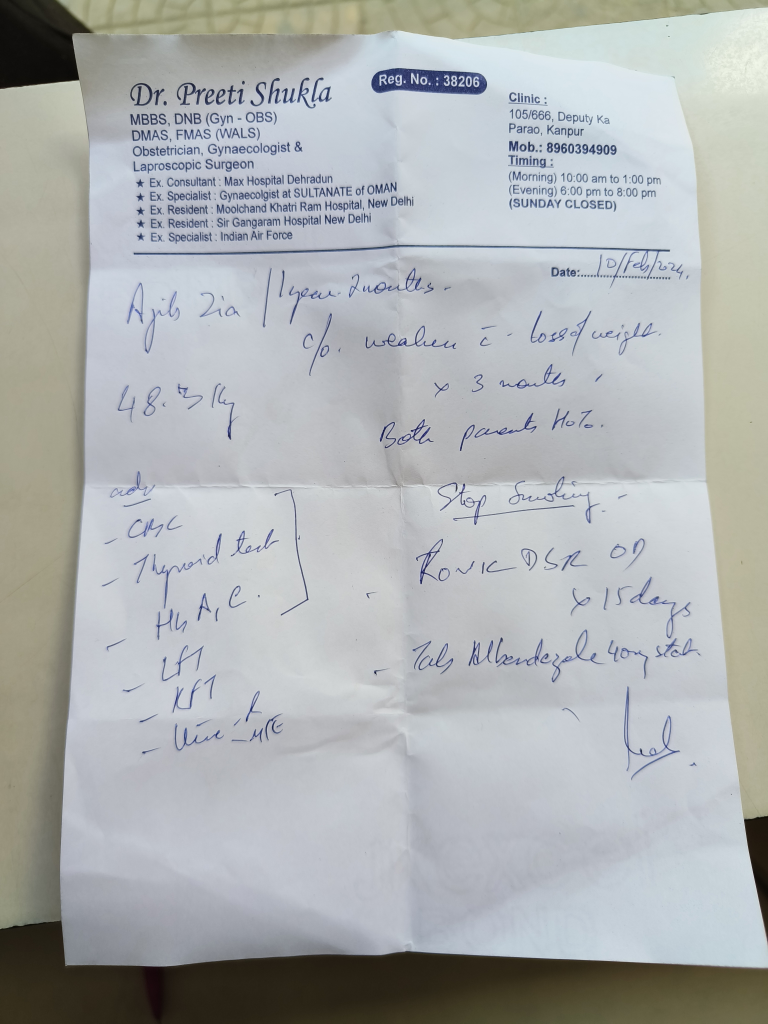 Dr. Preeti Shukla
MBBS, DNB (Gyn - OBS)
DMAS, FMAS (WALS)
Obstetrician, Gynaecologist &
Laproscopic Surgeon
★ Ex. Consultant : Max Hospital Dehradun
★ Ex. Specialist : Gynaecolgist at SULTANATE of OMAN
★ Ex. Resident : Moolchand Khatri Ram Hospital, New Delhi
★ Ex. Resident : Sir Gangaram Hospital New Delhi
★ Ex. Specialist : Indian Air Force
Reg. No. : 38206
Clinic :
105/666, Deputy Ka
Parao, Kanpur
Mob.: 8960394909
Timing :
(Morning) 10:00 am to 1:00 pm
(Evening) 6:00 pm to 8:00 pm
(SUNDAY CLOSED)
Date: 10/Feb/2024
Zia / 1 year 2 months
c/o. c̄ - loss of weight
x 3 months
48.3 Kg
Both parents
adv
- CBC
- Thyroid test
- Hb A1C
- LFT
- KFT
- Urine R
- M/E
Stop Smoking -
DSR OD
x 15 days
- Tab Albendazole stat